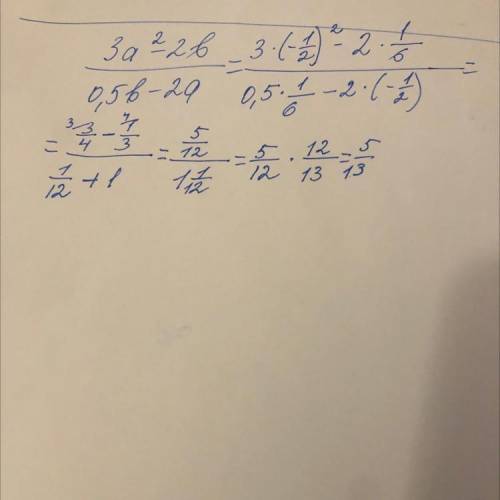 (3a² − 2b)/(0,5b − 2a) = (3 · (−1/2)² − 2 · 1/6)/(0,5 · 1/6 − 2 · (−1/2)) =
= (³⁾3/4 − ⁴⁾1/3)/(1/12 + 1) = (5/12)/(1 1/12) = 5/12 · 12/13 = 5/13